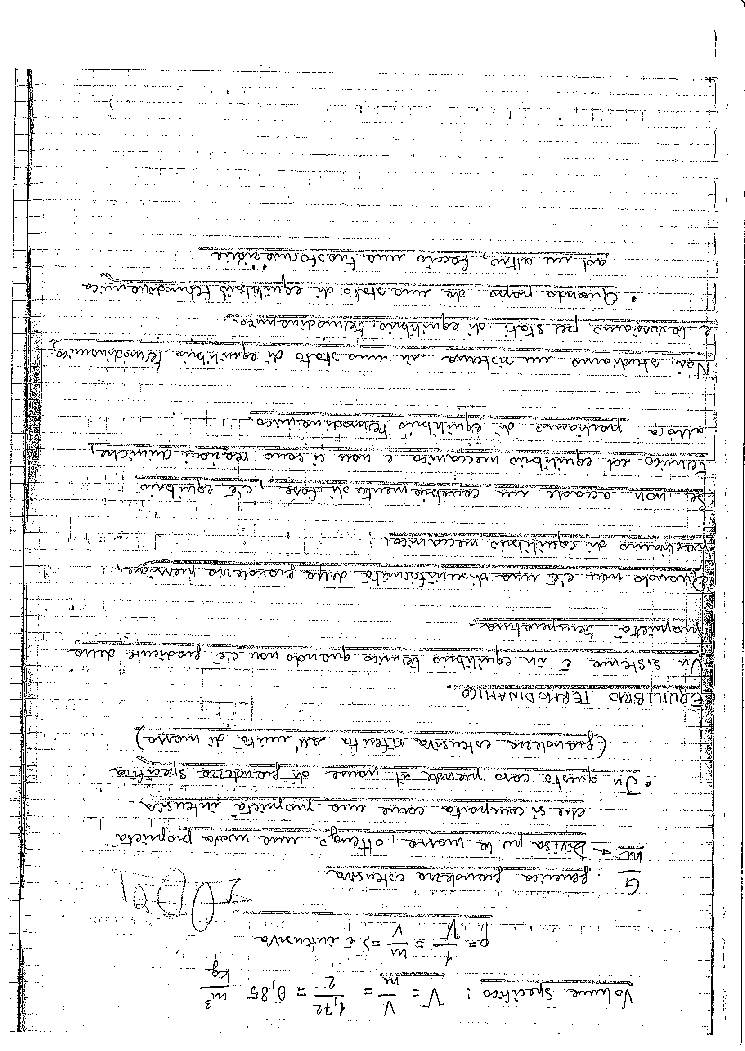 Volume specifico: V = V/m = 1,72/2 = 0,85 m³/kg
ρ = 1/V = m/V => è intensiva
G generica grandezza estensiva
m → Divisa per la massa, ottengo una nuova proprietà
che si comporta come una proprietà intensiva
• In questo caso prende il nome di grandezza specifica
(grandezza estensiva riferita all'unità di massa)
EQUILIBRIO TERMODINAMICO.
Un sistema è in equilibrio termico quando non c'è gradiente della
proprietà temperatura.
Quando non c'è una disuniformità della grandezza pressione,
parliamo di equilibrio meccanico.
Se non accade un cambiamento di fase, c'è equilibrio
termico ed equilibrio meccanico e non ci sono reazioni chimiche,
allora parliamo di equilibrio termodinamico.
Noi studiamo un sistema in uno stato di equilibrio termodinamico,
e lo studiamo per stati di equilibrio termodinamico.
• Quando passo da uno stato di equilibrio termodinamico
ad un altro, faccio una trasformazione